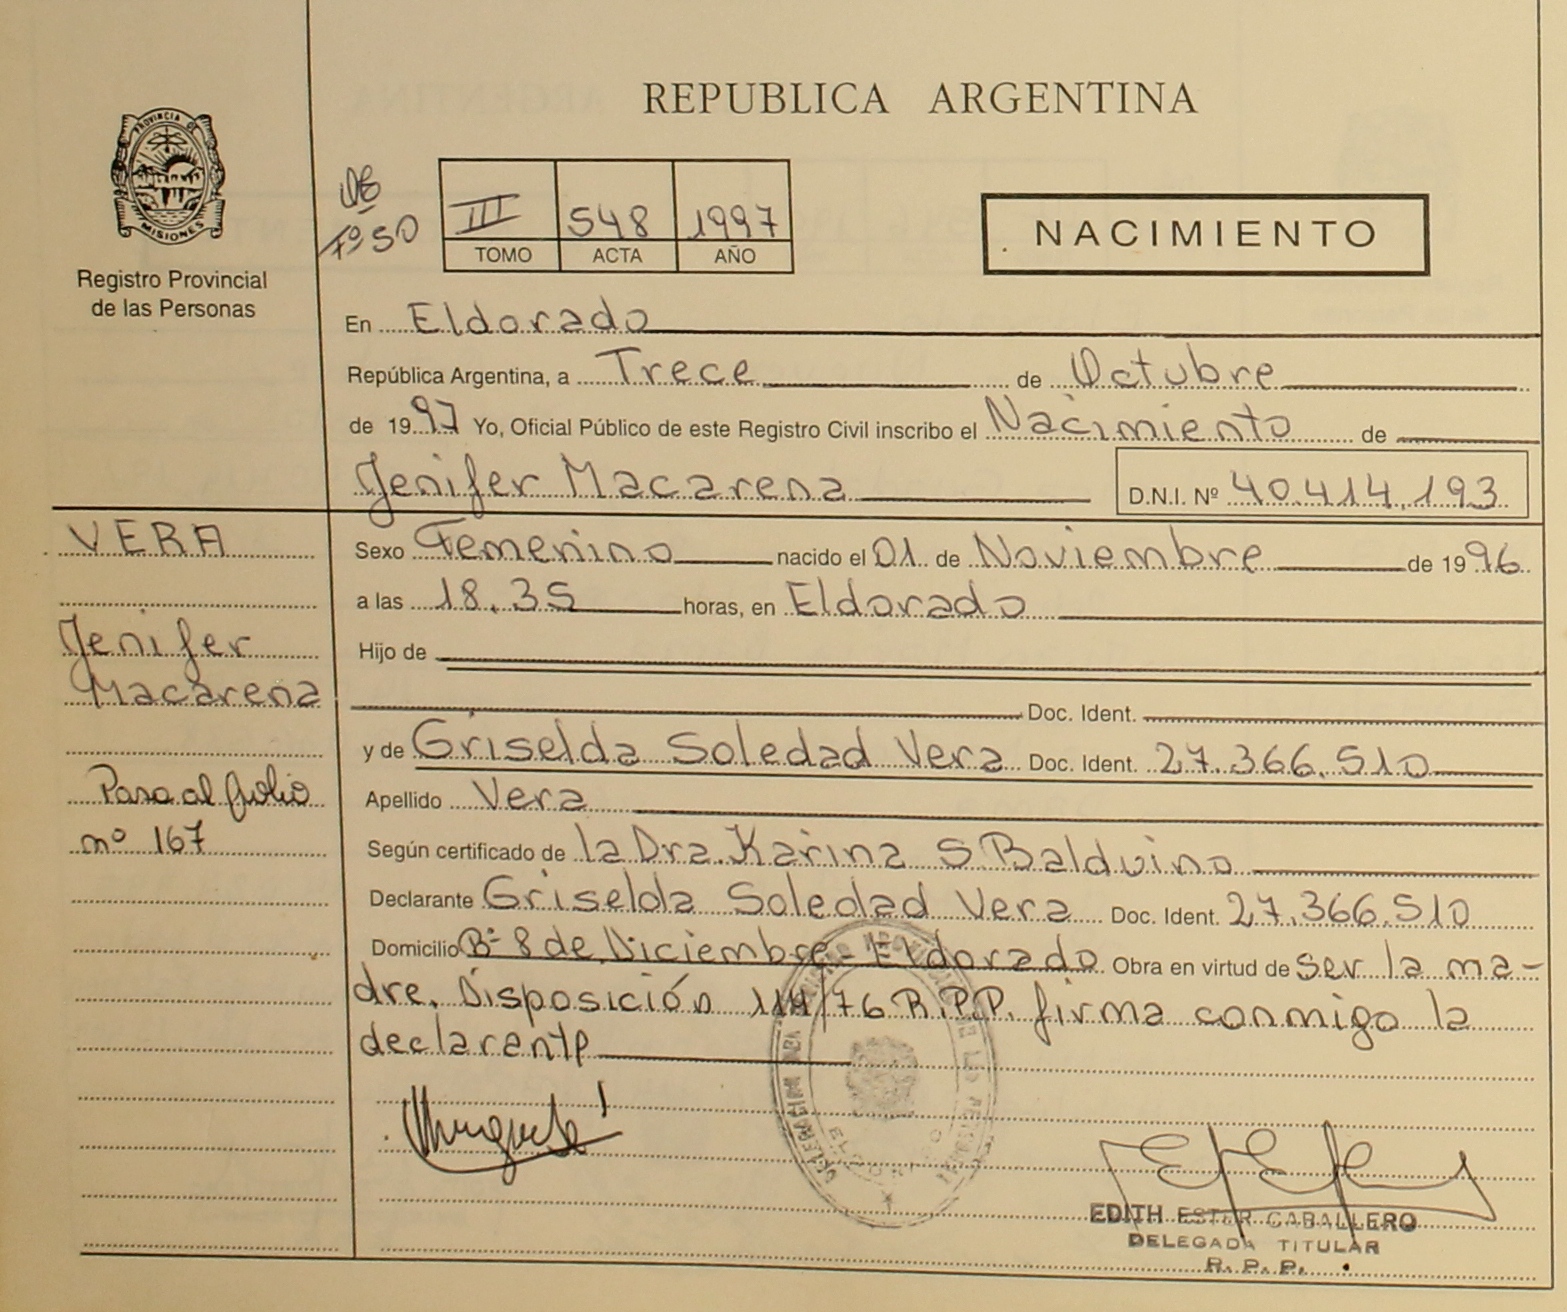 REPUBLICA ARGENTINA
PROVINCIA DE
MISIONES
Registro Provincial
de las Personas
Fº 50
III 548 1997
TOMO ACTA AÑO
NACIMIENTO
En Eldorado
República Argentina, a Trece de Octubre
de 1997 Yo, Oficial Público de este Registro Civil inscribo el Nacimiento de
Jenifer Macarena D.N.I. Nº 40.414.193
VERA
Jenifer
Macarena
Pasa al folio
nº 167
Sexo Femenino nacido el 01 de Noviembre de 1996
a las 18.35 horas, en Eldorado
Hijo de
Doc. Ident.
y de Griselda Soledad Vera Doc. Ident. 27.366.510
Apellido Vera
Según certificado de la Dra. Karina S. Balduino
Declarante Griselda Soledad Vera Doc. Ident. 27.366.510
Domicilio Bº 8 de Diciembre - Eldorado Obra en virtud de ser la ma-
dre. Disposición /76 R.P.P. firma conmigo la
declarante
EDITH ESTER CABALLERO
DELEGADA TITULAR
R. P. P.